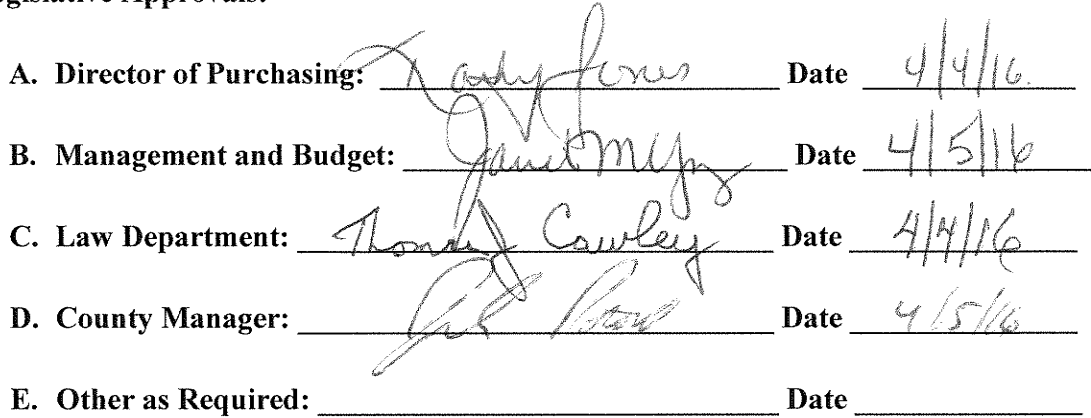 gislative Approvals:
A. Director of Purchasing: Jones Date 4/4/16.
B. Management and Budget: Janet Date 4/5/16
C. Law Department: Thomas J Cawley Date 4/4/16
D. County Manager: Date 4/5/16
E. Other as Required: Date